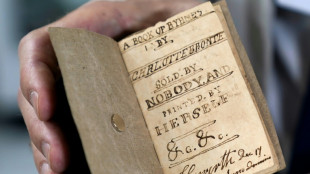 A BOOK OF RYHMES
BY
CHARLOTTE BRONTE
SOLD BY
NOBODY AND
PRINTED BY
HERSELF
&c. &c.
Haworth Dec 17